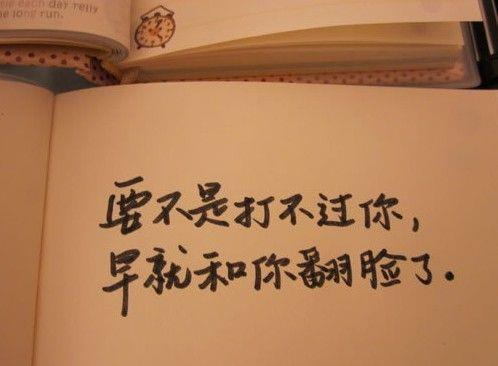 each day relly
long run.
要不是打不过你,
早就和你翻脸了.